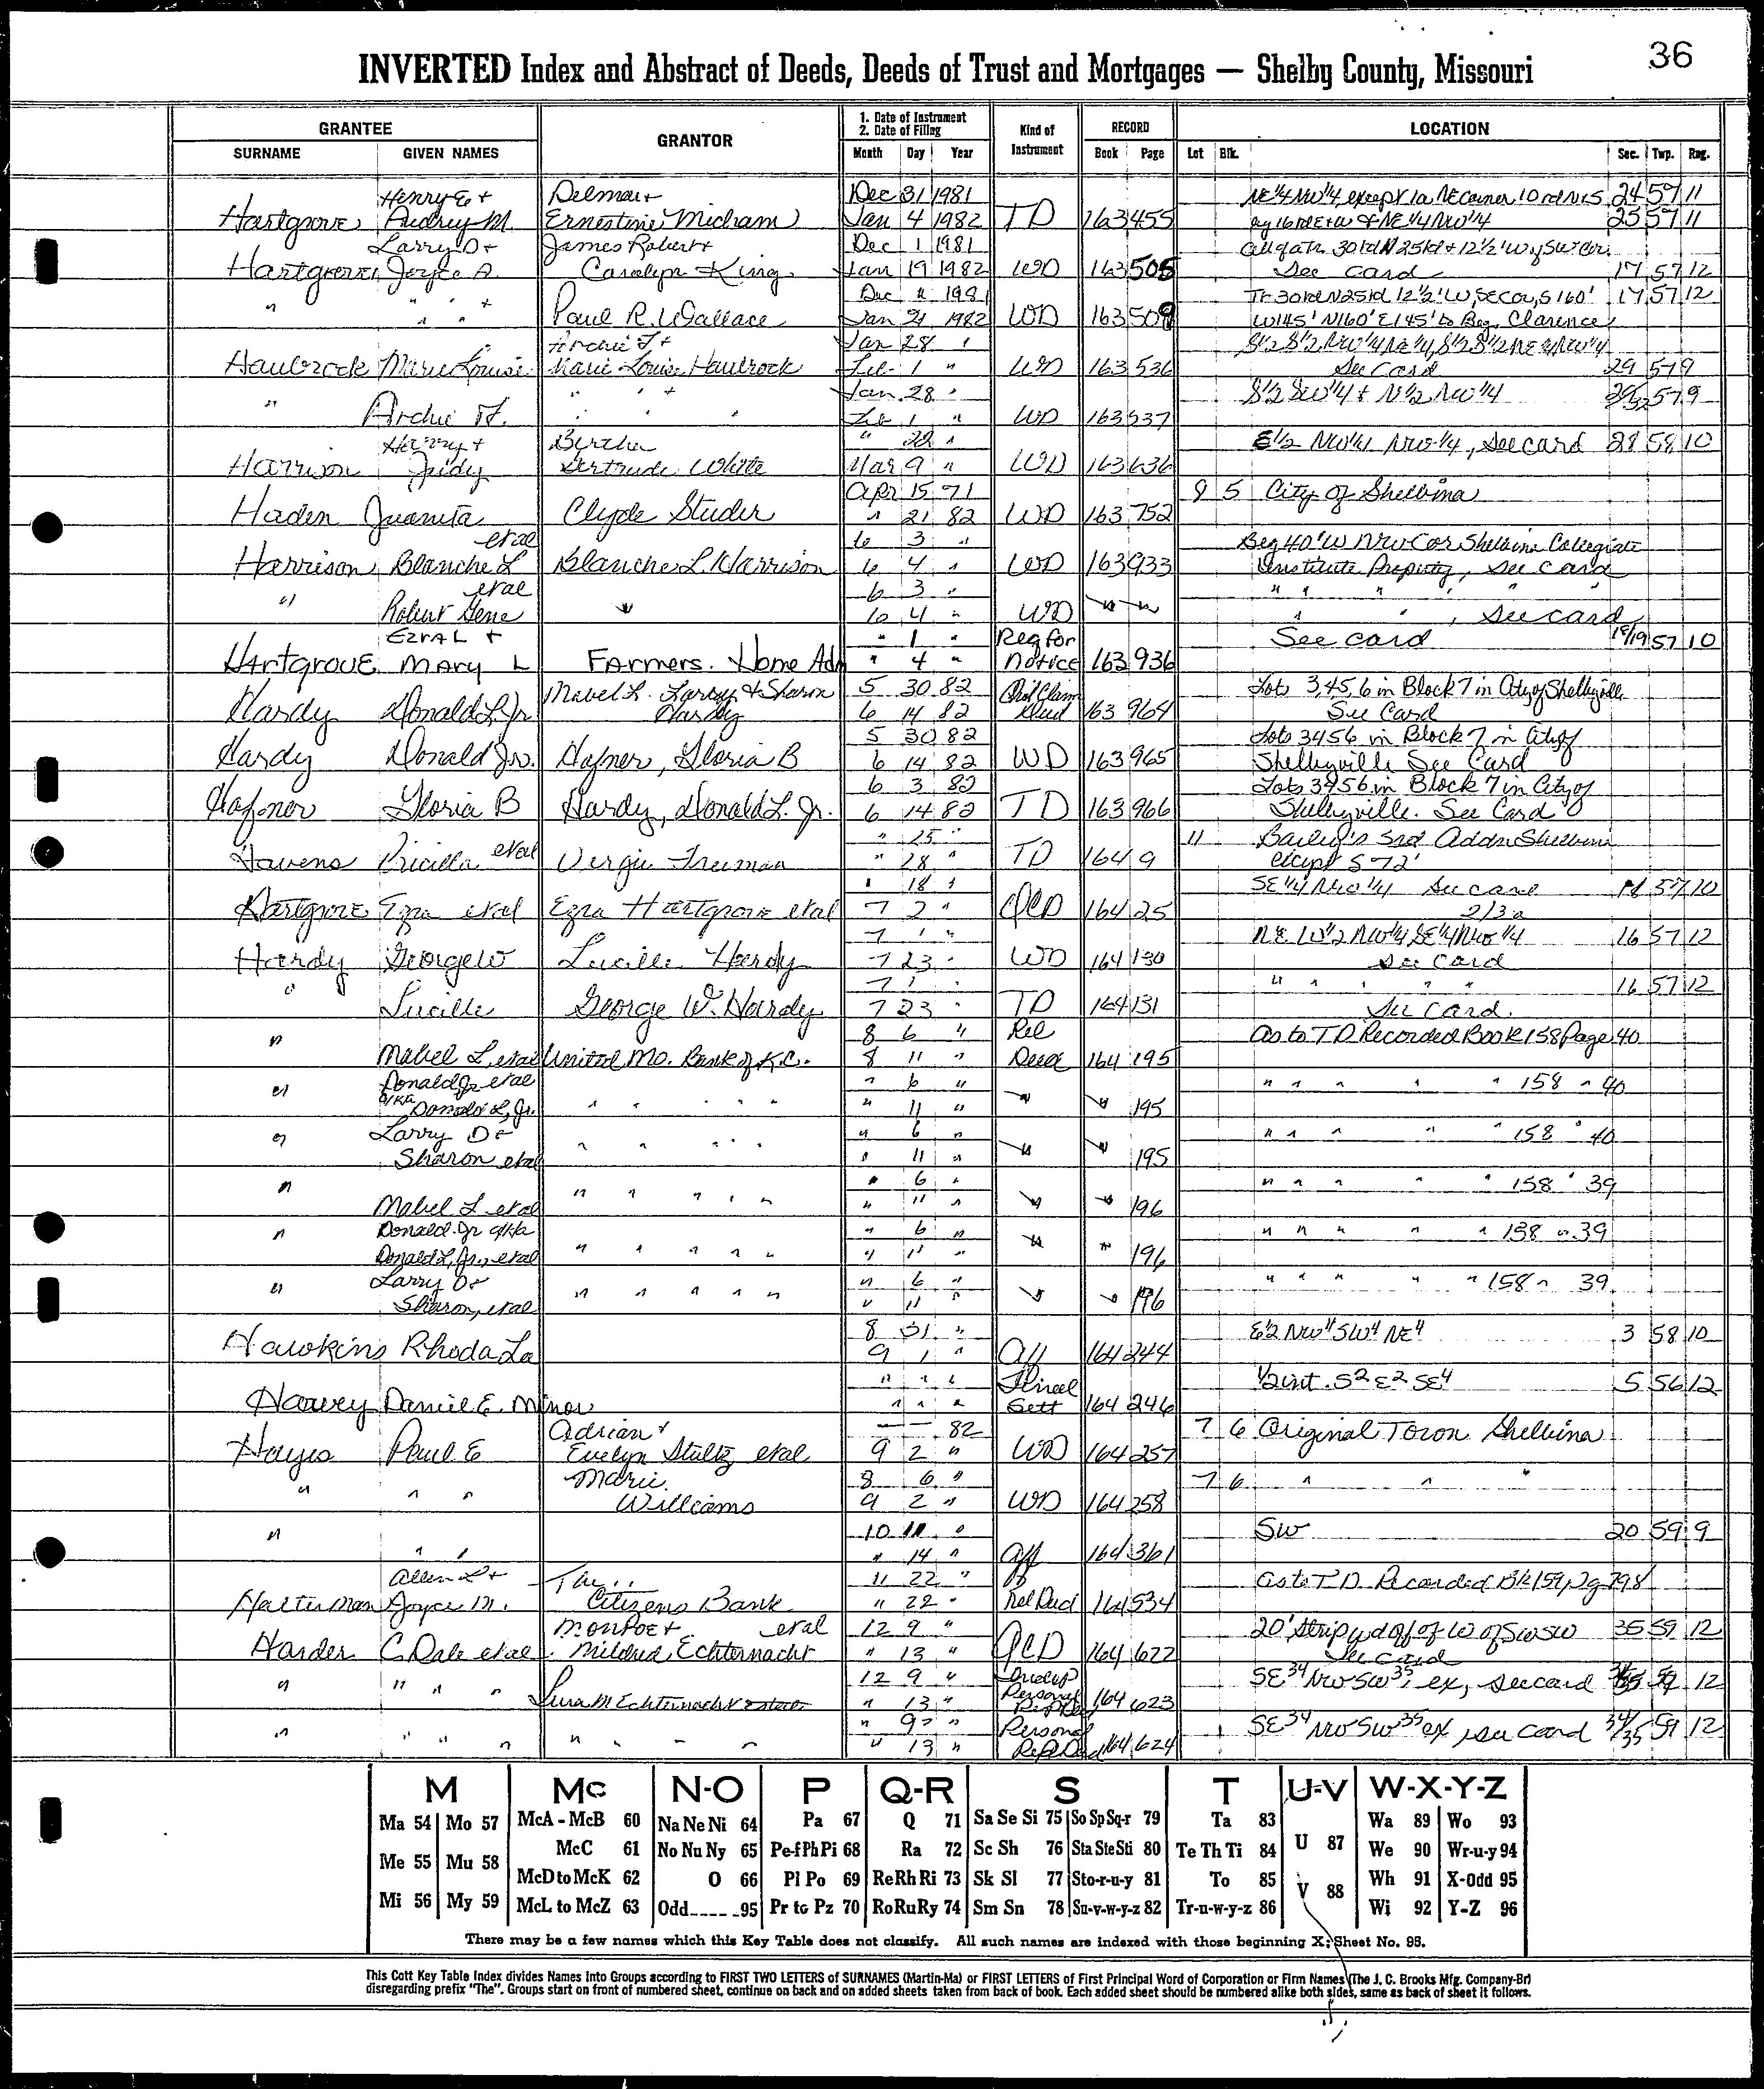 36
INVERTED Index and Abstract of Deeds, Deeds of Trust and Mortgages — Shelby County, Missouri
GRANTEE GRANTOR 1. Date of Instrument 2. Date of Filing Kind of Instrument RECORD LOCATION
SURNAME GIVEN NAMES Month Day Year Book Page Lot Blk. Sec. Twp. Rng.
Henry E + Delmar + Dec 31 1981 NE 1/4 NW 1/4 except 1a NE Corner 10 rd N+S 24 57 11
Hartgrove Audrey M. Ernestine Jan 4 1982 TD 163 455 by 16 rd E+W + NE 1/4 NW 1/4 25 57 11
Larry D + James Robert + Dec 1 1981 30 rd N 25 rd + 12 1/2' W of SW Cor.
Hartgrove Joyce A. Carolyn King Jan 19 1982 WD 163 505 See Card 17 57 12
" " " + Dec " 1981 Tr 30 rd N 25 rd 12 1/2' W, SE Cor, S 160' 17 57 12
" " Paul R. Wallace Jan 21 1982 WD 163 509 W 145' N 160' E 145' to Beg. Clarence
Archie F + Jan 28 " S 1/2 S 1/2 NW 1/4 NE 1/4, S 1/2 S 1/2 NE 1/4 NW 1/4
Haubrock Marie Louise Marie Louise Haubrock Feb 1 " WD 163 536 See Card 29 57 9
" " " " Jan 28 " S 1/2 SW 1/4 + N 1/2 NW 1/4 57 9
Archie F. " " " Feb 1 " WD 163 537
Harry + Bertha " 22 " E 1/2 NW 1/4 NW 1/4, See card 28 58 10
Harrison Judy Gertrude White Mar 9 " WD 163 636
Apr 15 71 8 5 City of Shelbina
Haden Juanita Clyde Studer " 21 82 WD 163 752
etal 6 3 " Beg 40' W NW Cor Shelbina Collegiate
Harrison Blanche L Blanche L. Harrison 6 4 " WD 163 933 Institute Property, See Card
" etal 6 3 " " " " " "
Robert Gene " 6 4 " WD " " " " , See card
Ezra L + " 1 " Req for See card 18/19 57 10
Hartgrove Mary L Farmers. Home Adm " 4 " Notice 163 936
Mabel L. Larry + Sharon 5 30 82 Quit Claim Lots 3,4,5,6 in Block 7 in City of Shelbyville
Hardy Donald L Jr Hardy 6 14 82 Deed 163 964 See Card
5 30 82 Lots 3 4 5 6 in Block 7 in City of
Hardy Donald Jr. Hafner, Gloria B 6 14 82 WD 163 965 Shelbyville See Card
6 3 82 Lots 3 4 5 6 in Block 7 in City of
Hafner Gloria B Hardy, Donald L. Jr. 6 14 82 TD 163 966 Shelbyville. See Card
" 25 " 11 Bailey's 3rd Addn Shelbina
Havens Pricilla etal Vergie Freeman " 28 " TD 164 9 except S 72'
" 18 " SE 1/4 NW 1/4 See card 57 10
Hartgrove Ezra etal Ezra Hartgrove etal 7 2 " QCD 164 25 2/3 a
7 1 " NE W 1/2 NW 1/4 SE 1/4 NW 1/4 16 57 12
Hardy George W Lucille Hardy 7 23 " WD 164 130 See Card
" 7 1 " " " " " " 16 57 12
Lucille George W. Hardy 7 23 " TD 164 131 See Card.
" 8 6 " Rel As to TD Recorded Book 158 Page 40
Mabel L, etal United Mo. Bank of K.C. 8 11 " Deed 164 195
" Donald Jr etal " 6 " " " " " " 158 " 40
a/k/a Donald L, Jr. " " " " " 11 " " " 195
" Larry D + " 6 " " " " " " 158 " 40
Sharon etal " " " " " 11 " " " 195
" " 6 " " " " " " 158 " 39
Mabel L etal " " " " " " 11 " " " 196
" Donald Jr a/k/a " 6 " " " " " " 158 " 39
Donald L, Jr., etal " " " " " " 11 " " " 196
" Larry D + " 6 " " " " " " 158 " 39
Sharon, etal " " " " " " 11 " " " 196
8 31 " E 1/2 NW 4 SW 4 NE 4 3 58 10
Hawkins Rhoda La 9 1 " Aff 164 244
" " " Final 1/2 int. S 2 E 2 SE 4 5 56 12
Harvey Daniel E. Minor " " " Sett 164 246
Adrian + — — 82 7 6 Original Town Shelbina
Hayes Paul E Evelyn Stultz etal 9 2 " WD 164 257
Marie 8 6 " 7 6 " " "
" " " Williams 9 2 " WD 164 258
" 10 11 " SW 20 59 9
" " " 14 " Aff 164 361
Allen L + The 11 22 " As to TD Recorded Bk 159, Pg 798
Halterman Joyce M. Citizens Bank " 22 " Rel Deed 164 534
Monroe + etal 12 9 " 20' Strip yd off of W of SW SW 35 59 12
Harder C. Dale etal Mildred Echternacht " 13 " QCD 164 622 See Card
" " " " 12 9 " SE 34 NW SW 35, ex, see card 59 12
Lura M Echternacht Estate " 13 " Personal 164 623
" " 9 " Personal SE 34 NW SW 35 ex, see card 34/35 59 12
" " " " " " " " 13 " Rep Deed 164 624
M Mc N-O P Q-R S T U-V W-X-Y-Z
Ma 54 Mo 57 McA - McB 60 Na Ne Ni 64 Pa 67 Q 71 Sa Se Si 75 So Sp Sq-r 79 Ta 83 Wa 89 Wo 93
McC 61 No Nu Ny 65 Pe-f Ph Pi 68 Ra 72 Sc Sh 76 Sta Ste Sti 80 Te Th Ti 84 U 87 We 90 Wr-u-y 94
Me 55 Mu 58 McD to McK 62 O 66 Pl Po 69 Re Rh Ri 73 Sk Sl 77 Sto-r-u-y 81 To 85 Wh 91 X-Odd 95
Mi 56 My 59 McL to McZ 63 Odd 95 Pr to Pz 70 Ro Ru Ry 74 Sm Sn 78 Su-v-w-y-z 82 Tr-u-w-y-z 86 V 88 Wi 92 Y-Z 96
There may be a few names which this Key Table does not classify. All such names are indexed with those beginning X, Sheet No. 95.
This Cott Key Table Index divides Names into Groups according to FIRST TWO LETTERS of SURNAMES (Martin-Ma) or FIRST LETTERS of First Principal Word of Corporation or Firm Names (The J. C. Brooks Mfg. Company-Br)
disregarding prefix "The". Groups start on front of numbered sheet, continue on back and on added sheets taken from back of book. Each added sheet should be numbered alike both sides, same as back of sheet it follows.